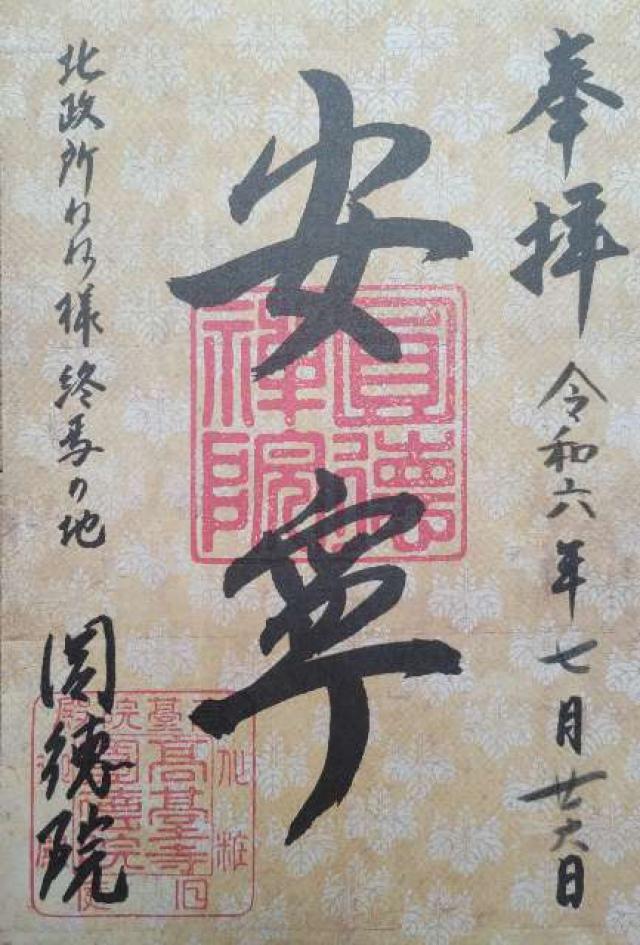 奉拝
令和六年七月廿六日
安寧
圓徳禅院
北政所ねね様終焉の地
圓徳院
高臺寺